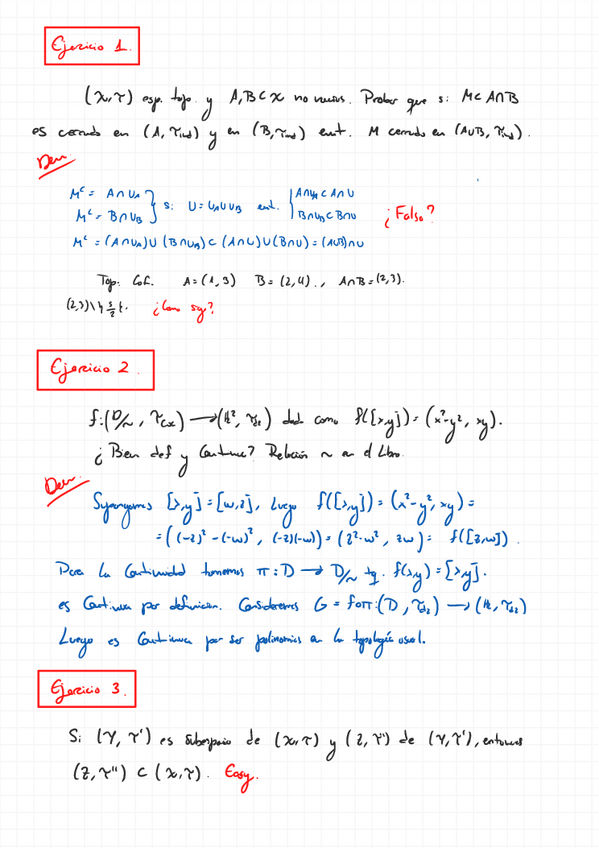 Ejercicio 1.
(X,τ) esp. top. y A,B⊂X no vacíos. Probar que si M⊂A∩B
es cerrado en (A, τind) y en (B, τind) ent. M cerrado en (A∪B, τind).
Dem
M^c = A∩U_A
M^c = B∩U_B } si U=U_A∪U_B ent. { A∩U_A⊂A∩U
B∩U_B⊂B∩U
¿Falso?
M^c = (A∩U_A)∪(B∩U_B)⊂(A∩U)∪(B∩U)=(A∪B)∩U
Top. Cof. A=(1,3) B=(2,4)., A∩B=(2,3).
(2,3)\{5/2}. ¿Como sig?
Ejercicio 2
f:(D/~, τ) → (R², τ) dad como f([x,y])=(x²-y², xy).
¿Bien def y Continua? Relación ~ en el Libro.
Dem.
Supongamos [x,y]=[w,z], luego f([x,y])=(x²-y², xy)=
=((-z)²-(-w)², (-z)(-w))=(z²-w², zw)= f([z,w]).
Para la Continuidad tomemos π:D → D/~ tq. f(x,y)=[x,y].
es Continua por definición. Consideremos G = f∘π:(D, τ) → (R, τ)
Luego es Continua por ser polinomios en la topología usual.
Ejercicio 3.
Si (Y, τ') es subespacio de (X,τ) y (Z,τ'') de (Y,τ'), entonces
(Z,τ'') ⊂ (X,τ). Easy.